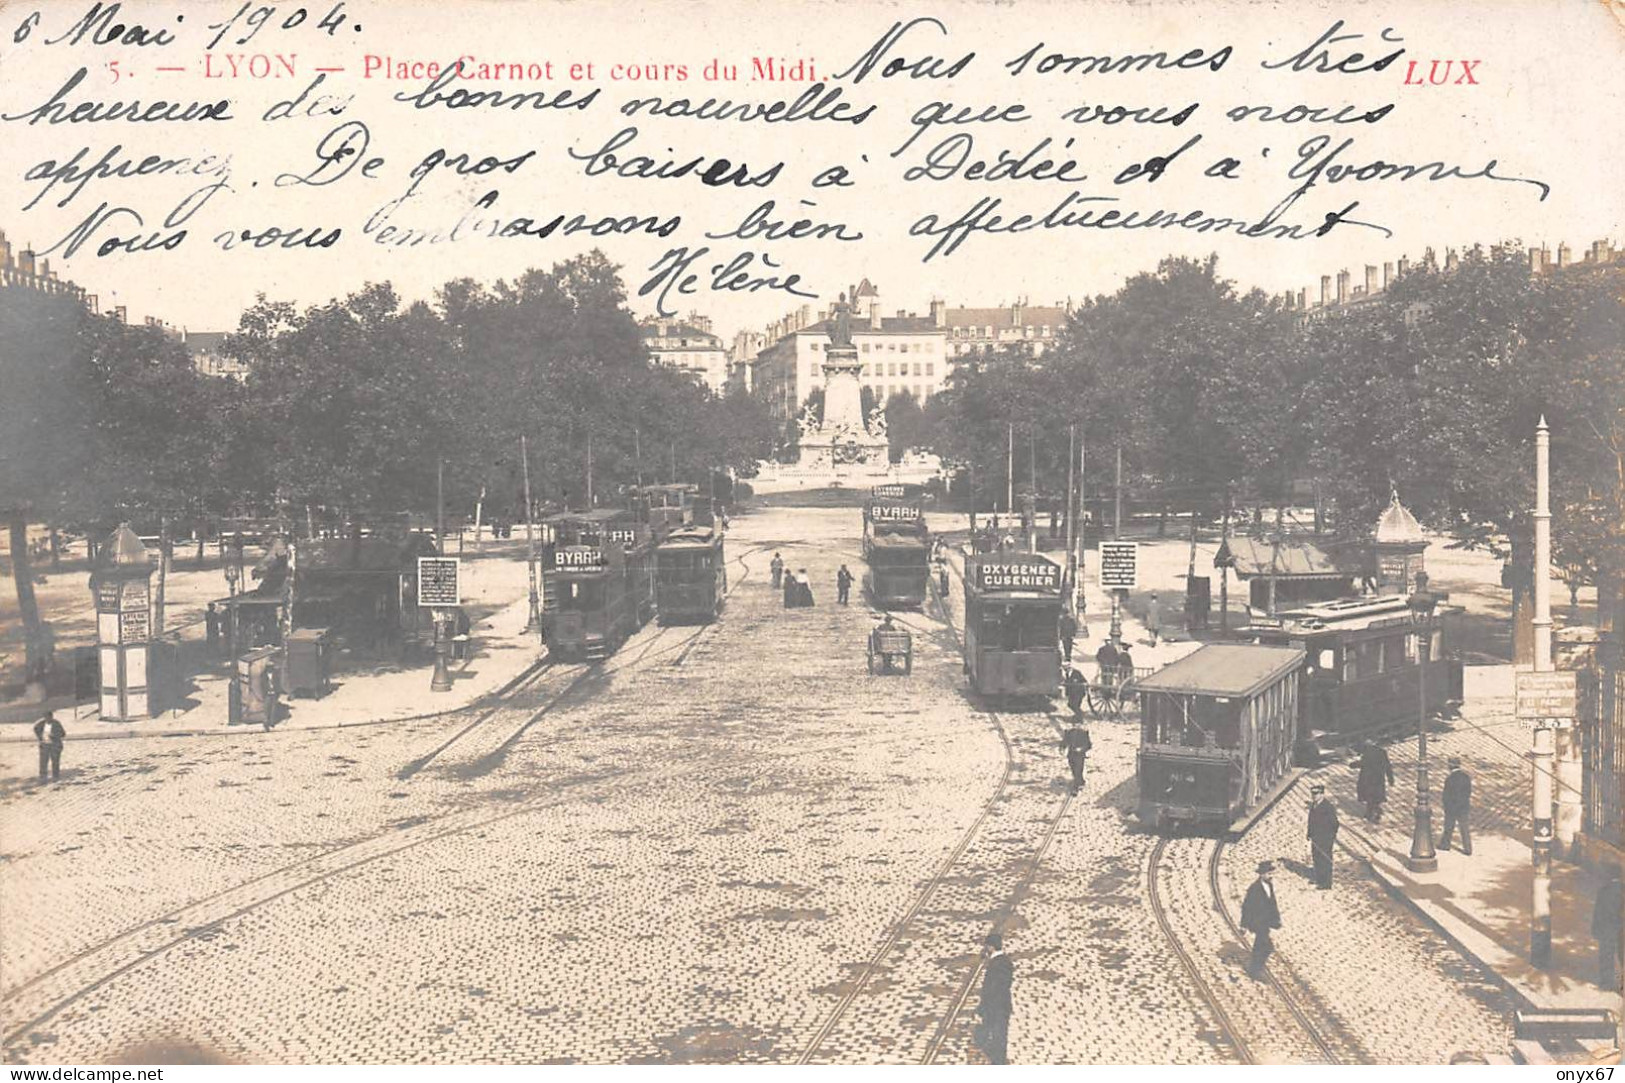 6 Mai 1904.
5. — LYON — Place Carnot et cours du Midi.
LUX
Nous sommes très
heureux des bonnes nouvelles que vous nous
apprenez. De gros baisers à Dédée et à Yvonne
Nous vous embrassons bien affectueusement
Hélène
BYRRH
PH
OXYGÉNÉE
CUSENIER
BYRRH
OXYGÉNÉE
CUSENIER
N° 4
onyx67
delcampe.net